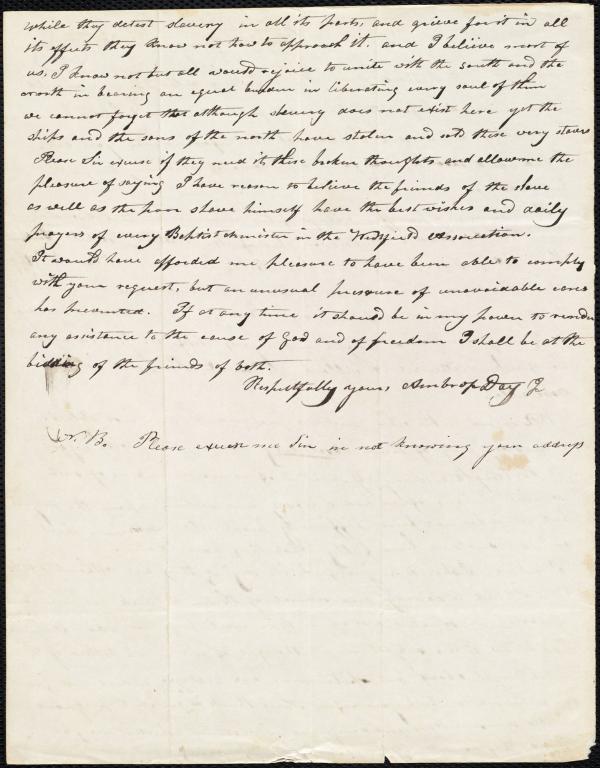 while they detest slavery in all its parts, and grieve for it in all
its effects they know not how to approach it. and I believe most of
us, I know not but all would rejoice to unite with the south and the
north in bearing an equal burden in liberating every soul of them
we cannot forget that although slavery does not exist here yet the
ships and the sons of the north have stolen and sold these very slaves
Please Sir excuse if they need it, these broken thoughts, and allow me the
pleasure of saying I have reason to believe the friends of the slave
as well as the poor slave himself have the best wishes and daily
prayers of every Baptist minister in the Westfield Association.
It would have afforded me pleasure to have been able to comply
with your request, but an unusual pressure of unavoidable cares
has prevented. If at any time it should be in my power to render
any assistance to the cause of God and of freedom I shall be at the
bidding of the friends of both.
Respectfully yours, Ambrose Day
N. B. Please excuse me Sir in not knowing your address